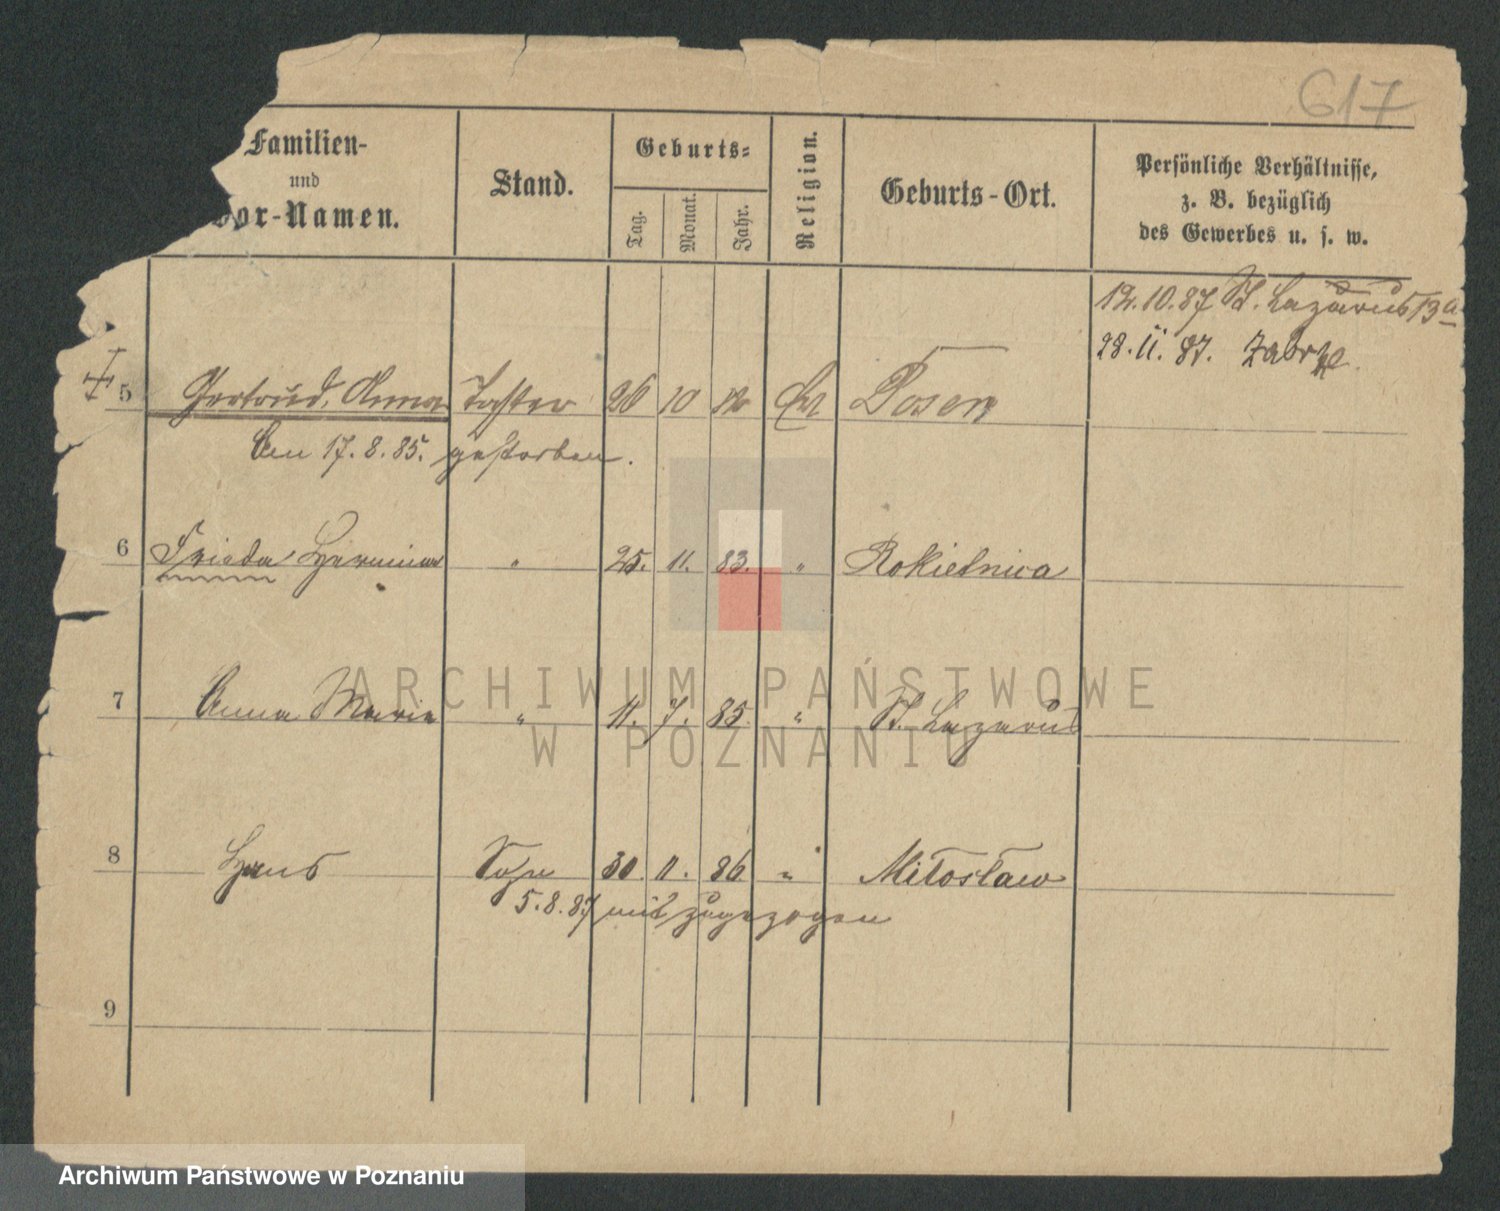 617
Familien-
und
Vor-Namen.
Stand.
Geburts-
Tag.
Monat.
Jahr.
Religion.
Geburts-Ort.
Persönliche Verhältnisse,
z. B. bezüglich
des Gewerbes u. s. w.
12.10.87 St. Lazarus 13a
28.11.87. Zabrze.
5 Gertrud, Anna Tochter 26 10 Ev Posen
Am 17.8.85. gestorben.
6 Frieda Hermine " 25. 11. 83. " Rokietnica
7 Anna Marie " 11. 7. 85. " St. Lazarus
8 Hans Sohn 30. 11. 86 " Miłosław
5.8.87 mit zugezogen
9
ARCHIWUM PAŃSTWOWE
W POZNANIU
Archiwum Państwowe w Poznaniu